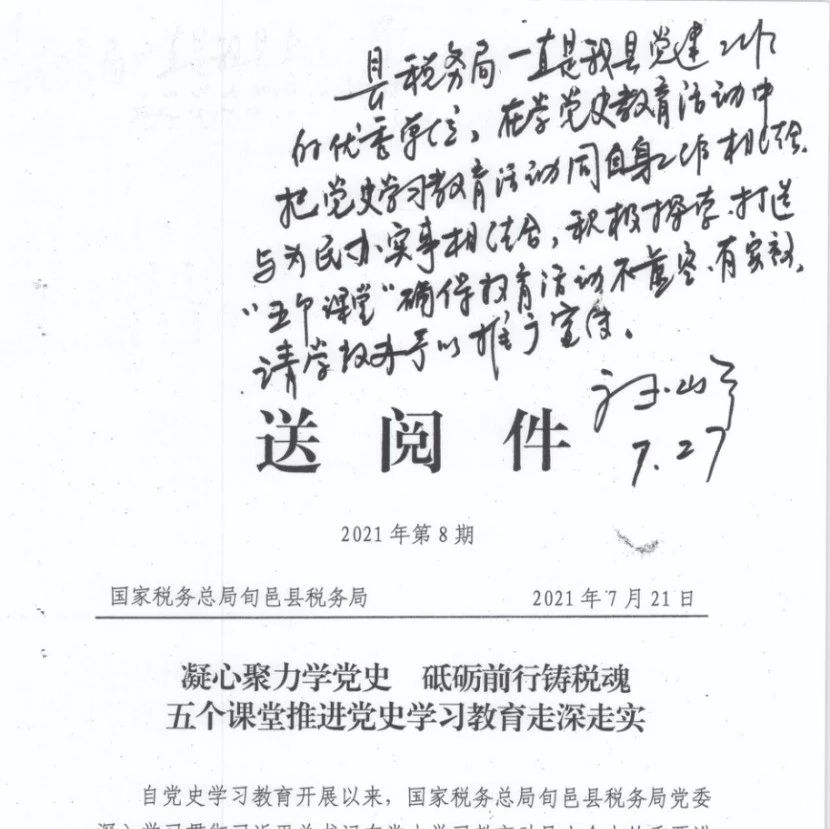 县税务局一直是我县党建工作
的优秀单位，在学党史教育活动中
把党史学习教育活动同自身工作相结合，
与为民办实事相结合，积极探索，打造
“五个课堂”确保教育活动不虚空、有实效，
请学教办予以推广宣传。
7.27
送阅件
2021年第8期
国家税务总局旬邑县税务局 2021年7月21日
凝心聚力学党史 砥砺前行铸税魂
五个课堂推进党史学习教育走深走实
自党史学习教育开展以来，国家税务总局旬邑县税务局党委